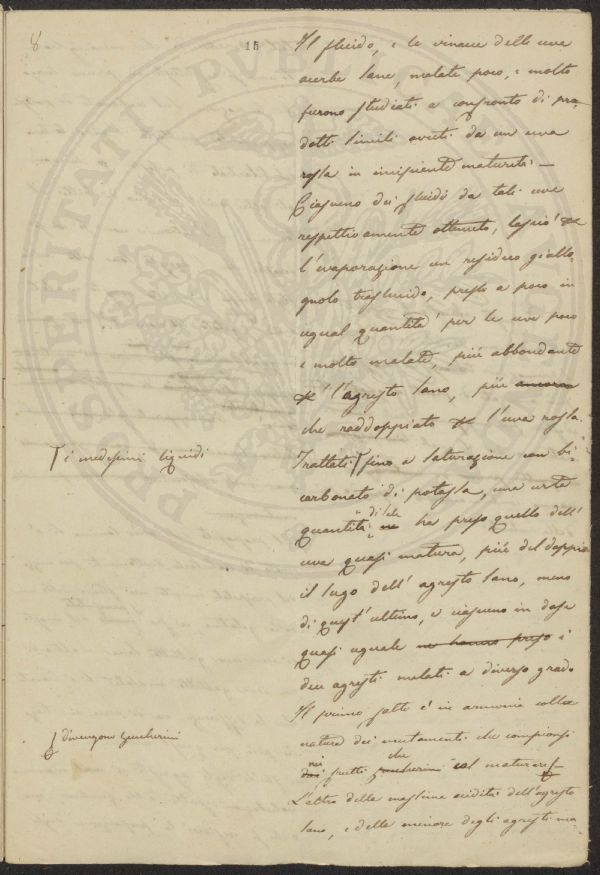 8
15
Il fluido, e le vinacce delle uve
acerbe sane, malate poco, e molto
furono studiati a confronto di pro
dotti simili avuti da un uva
rossa in incipiente maturità —
Ciascuno dei fluidi da tali uve
rispettivamente ottenuto, lasciò
l'evaporazione un residuo giallo
gnolo traslucido, presso a poco in
ugual quantità per le uve poco
e molto malate, più abbondante
l'agresto sano, più ancora
che raddoppiato l'uva rossa.
Trattati fino a saturazione con bi
i medesimi liquidi
carbonato di potassa, una certa
di sale
quantità ne ha preso quello dell'
uva quasi matura, più del doppio
il sugo dell'agresto sano, meno
di quest'ultimo, e ciascuno in dose
quasi uguale ne hanno preso i
due agresti malati a diverso grado
Il primo fatto è in armonia colla
natura dei mutamenti che compionsi
nei che
dai frutti zuccherini col maturare
divengono zuccherini
L'altro della massima acidità dell'agresto
sano, e della minore degli agresti ma